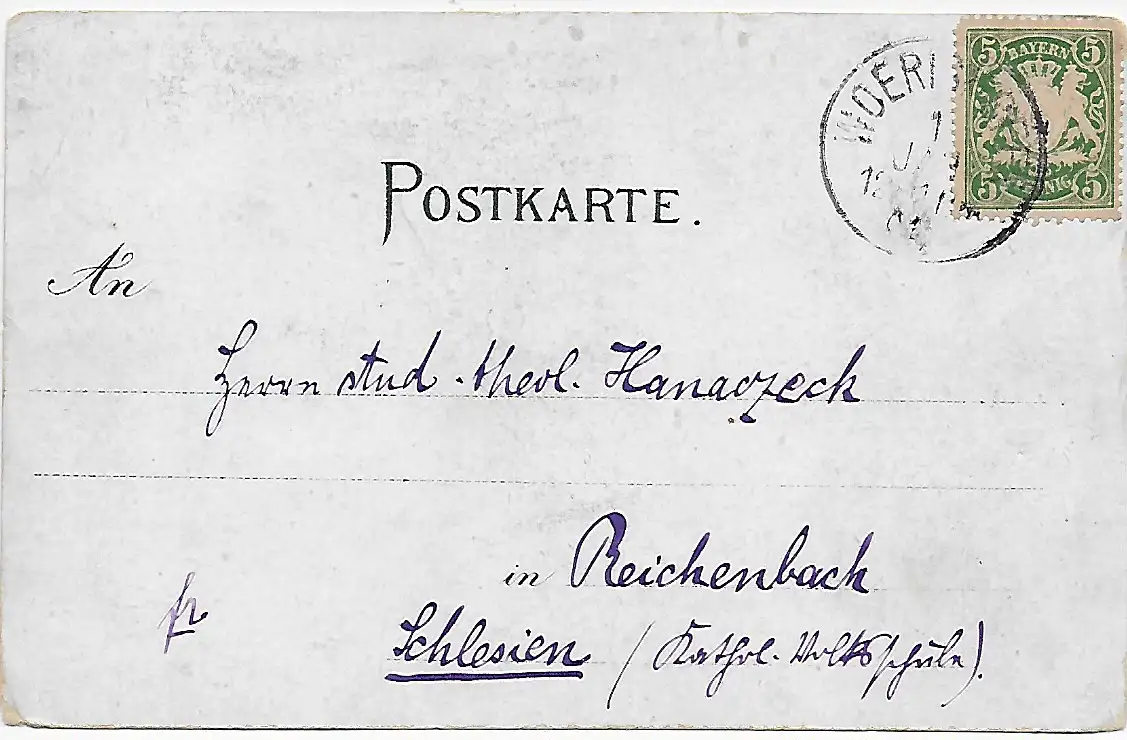 5 BAYERN 5
5 5
POSTKARTE.
An
Herrn stud. theol. Hanaczeck
in Reichenbach
fr
Schlesien (Kathol. Volksschule).